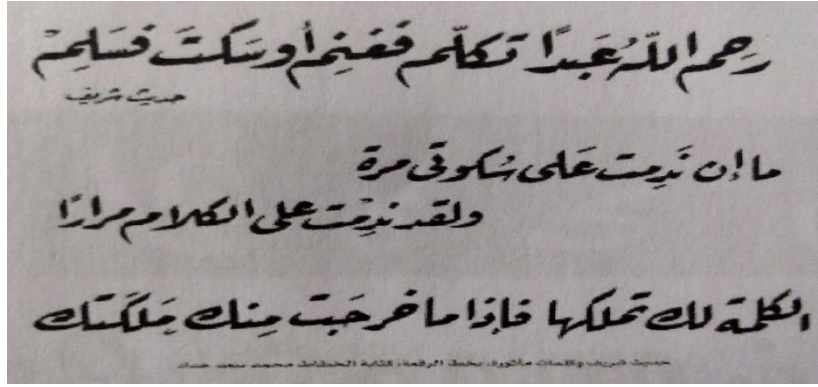 رحم اللّٰهُ عَبدًا تكلّم فغنِمْ أوسَكتَ فسَلِمْ
حديث شريف
ما إن نَدِمت عَلى سُكوتى مرة
ولقد ندِمْت على الكلام مرارًا
الكلمة لك تملكها فإذا ما خرجَت مِنك مَلكَتك
حديث شريف وكلمات مأثورة، بخط الرقعة، كتابة الخطاط محمد سعد حداد